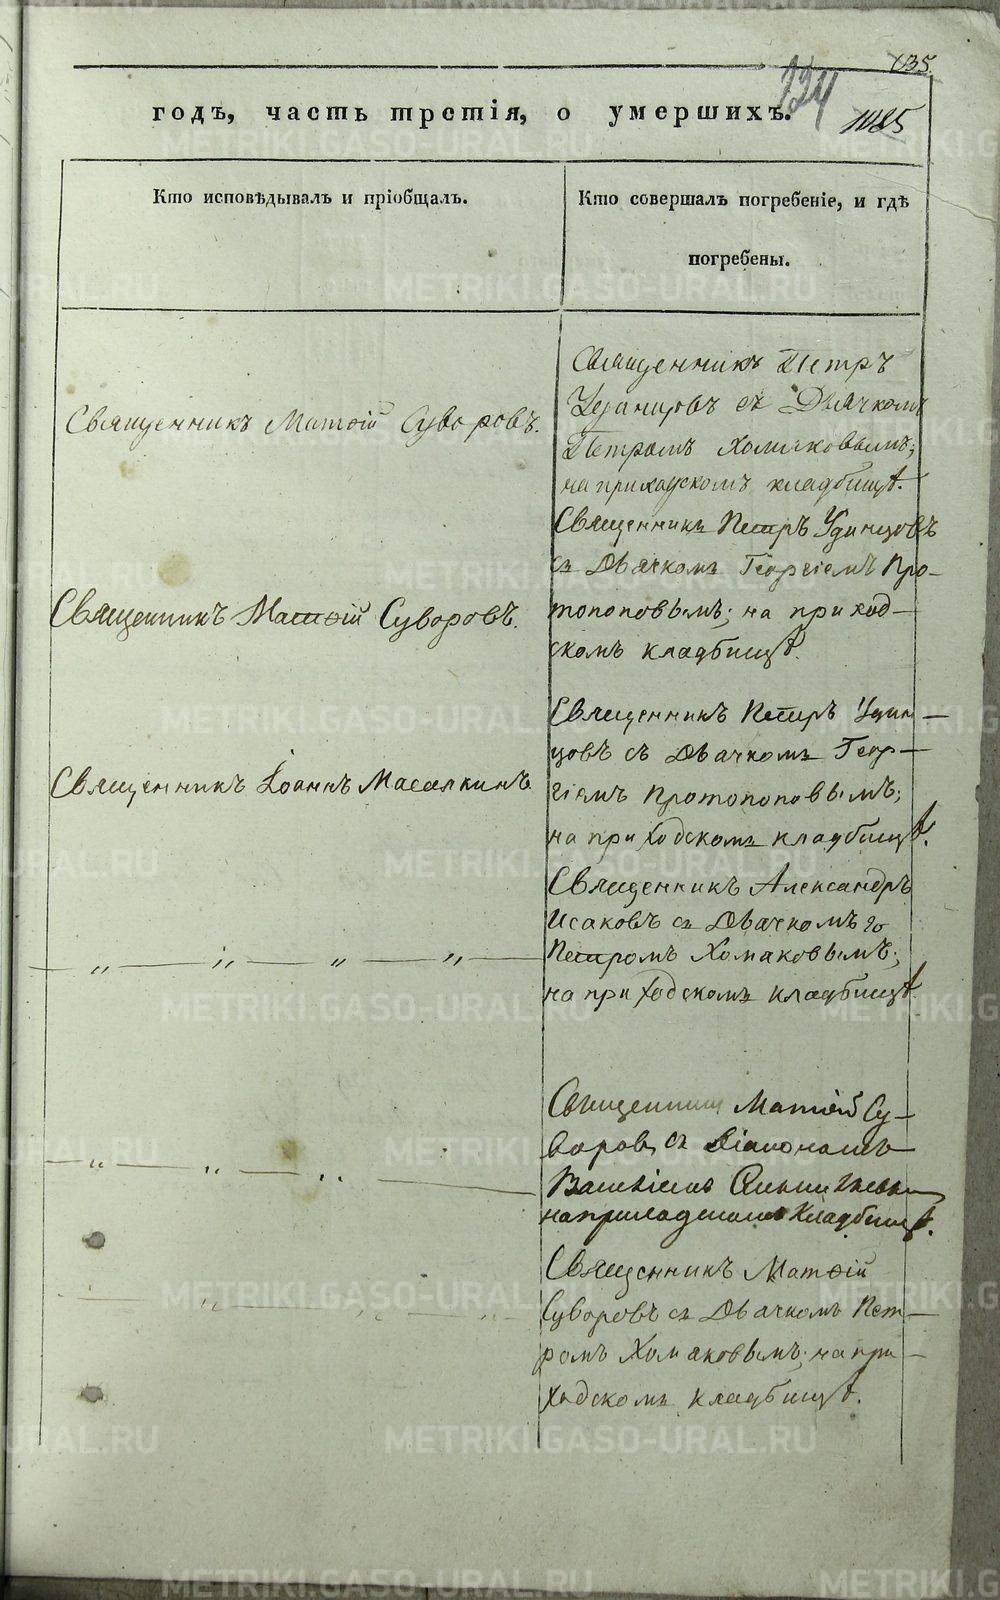 135.
134
1085
годъ, часть третія, о умершихъ.
Кто исповѣдывалъ и пріобщалъ.
Кто совершалъ погребеніе, и гдѣ
погребены.
Священникъ Матѳій Суворовъ.
Священникъ Петръ
съ Дьячкомъ
Петромъ Хомяковымъ;
на приходскомъ кладбищѣ.
Священникъ Матѳій Суворовъ.
Священникъ Петръ Удинцовъ
съ Дьячкомъ Георгіемъ Про-
топоповымъ; на приход-
скомъ кладбищѣ.
Священникъ Іоаннъ Масалкинъ
Священникъ Петръ Удин-
цовъ съ Дьячкомъ Геор-
гіемъ Протопоповымъ;
на приходскомъ кладбищѣ.
— „ — „ — „ — „ —
Священникъ Александръ
Исаковъ съ Дьячкомъ
Петромъ Хомяковымъ;
на приходскомъ кладбищѣ.
— „ — „ — „ —
Священникъ Матѳій Су-
воровъ съ Діакономъ
на приходскомъ кладбищѣ.
Священникъ Матѳій
Суворовъ съ Дьячкомъ Пет-
ромъ Хомяковымъ; на при-
ходскомъ кладбищѣ.
METRIKI.GASO-URAL.RU